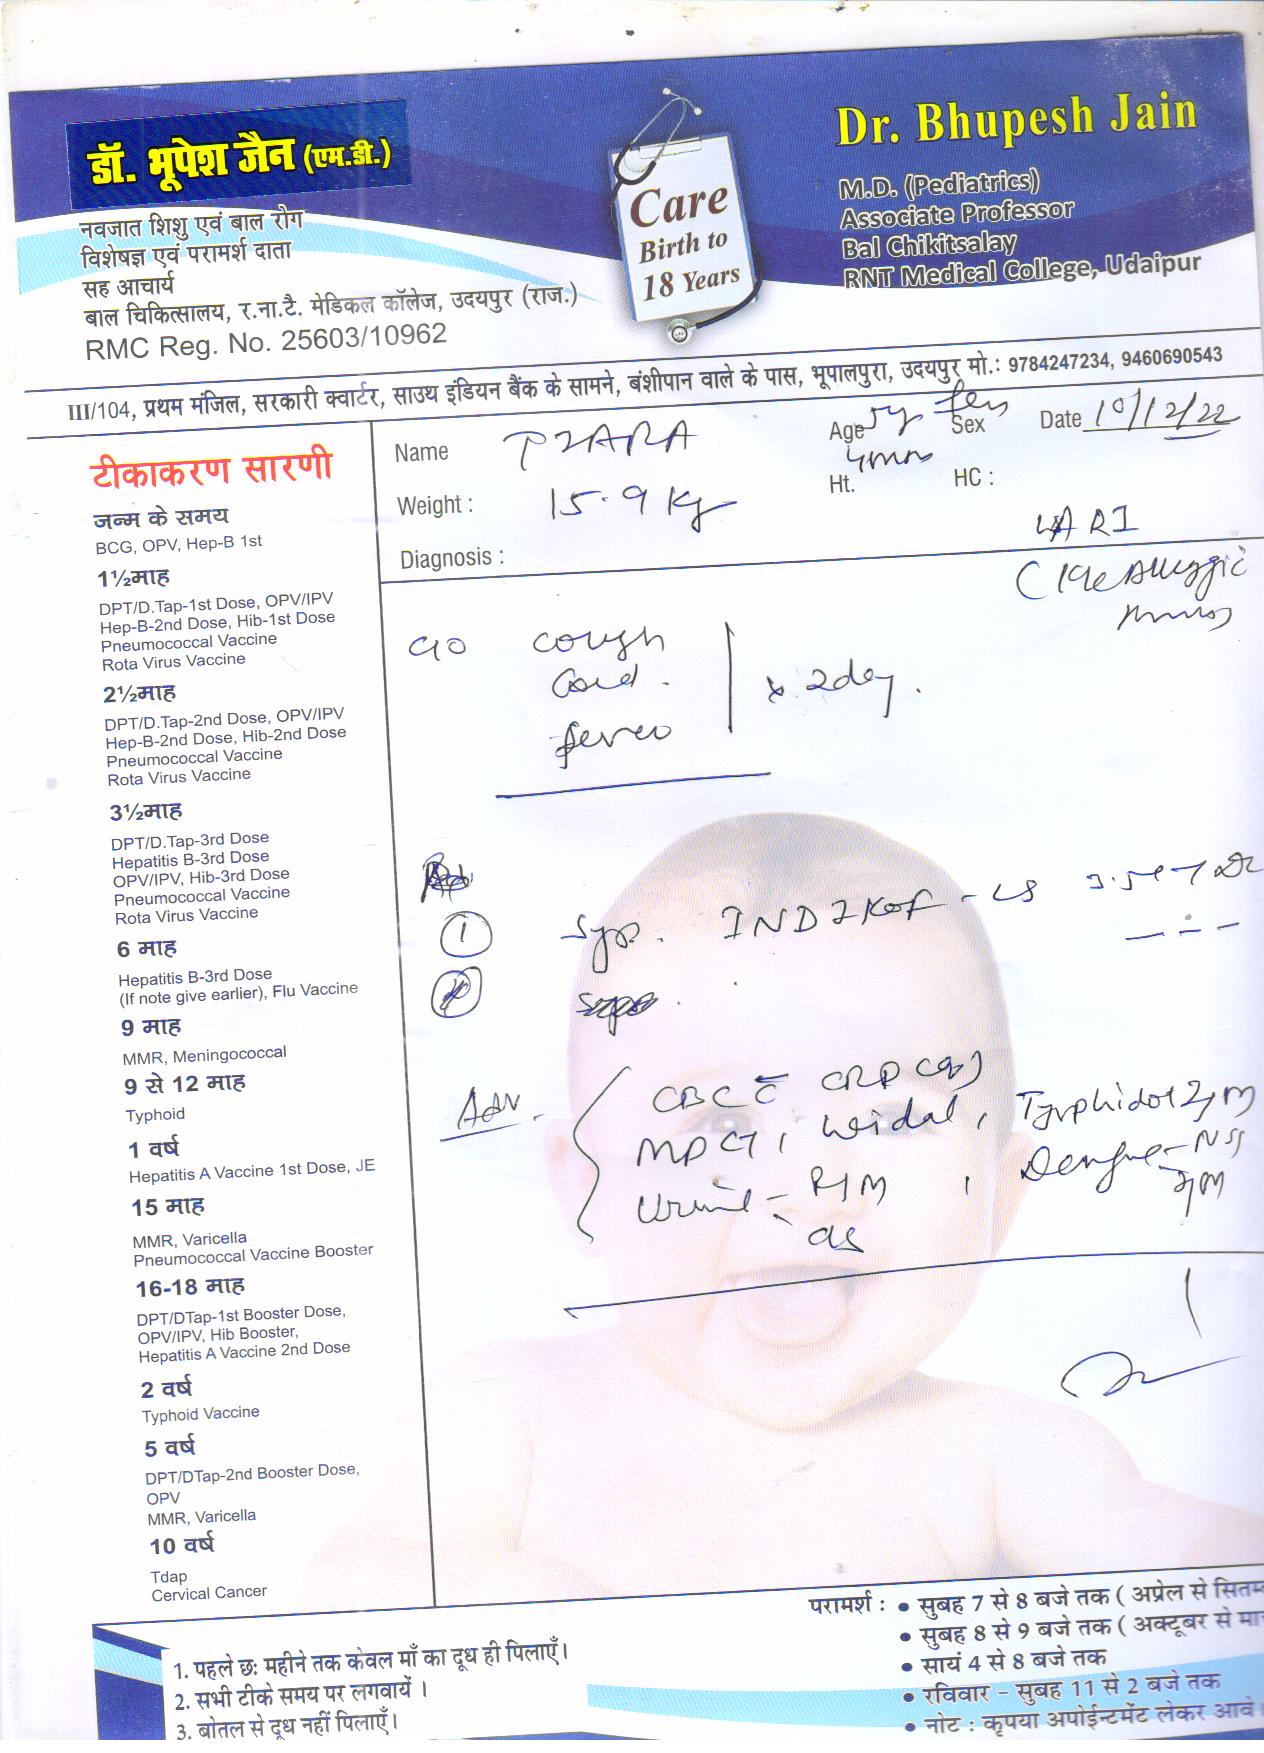 डॉ. भूपेश जैन (एम.डी.)
नवजात शिशु एवं बाल रोग
विशेषज्ञ एवं परामर्श दाता
सह आचार्य
बाल चिकित्सालय, र.ना.टै. मेडिकल कॉलेज, उदयपुर (राज.)
RMC Reg. No. 25603/10962
Care
Birth to
18 Years
Dr. Bhupesh Jain
M.D. (Pediatrics)
Associate Professor
Bal Chikitsalay
RNT Medical College, Udaipur
III/104, प्रथम मंजिल, सरकारी क्वार्टर, साउथ इंडियन बैंक के सामने, बंशीपान वाले के पास, भूपालपुरा, उदयपुर मो.: 9784247234, 9460690543
टीकाकरण सारणी
जन्म के समय
BCG, OPV, Hep-B 1st
1½माह
DPT/D.Tap-1st Dose, OPV/IPV
Hep-B-2nd Dose, Hib-1st Dose
Pneumococcal Vaccine
Rota Virus Vaccine
2½माह
DPT/D.Tap-2nd Dose, OPV/IPV
Hep-B-2nd Dose, Hib-2nd Dose
Pneumococcal Vaccine
Rota Virus Vaccine
3½माह
DPT/D.Tap-3rd Dose
Hepatitis B-3rd Dose
OPV/IPV, Hib-3rd Dose
Pneumococcal Vaccine
Rota Virus Vaccine
6 माह
Hepatitis B-3rd Dose
(If note give earlier), Flu Vaccine
9 माह
MMR, Meningococcal
9 से 12 माह
Typhoid
1 वर्ष
Hepatitis A Vaccine 1st Dose, JE
15 माह
MMR, Varicella
Pneumococcal Vaccine Booster
16-18 माह
DPT/DTap-1st Booster Dose,
OPV/IPV, Hib Booster,
Hepatitis A Vaccine 2nd Dose
2 वर्ष
Typhoid Vaccine
5 वर्ष
DPT/DTap-2nd Booster Dose,
OPV
MMR, Varicella
10 वर्ष
Tdap
Cervical Cancer
Name Age 5y Sex Date 10/12/22
4mon
Weight : 15.9 Kg Ht. HC :
Diagnosis : ARI
Allergic
C/O cough
Cold.
fever
x 2day.
1 Syp. - LS
Adv. CBC CRP
Widal, Typhidot
Urine - R/M, Dengue - NS1
CS
परामर्श : • सुबह 7 से 8 बजे तक ( अप्रेल से
• सुबह 8 से 9 बजे तक ( अक्टूबर से
• सायं 4 से 8 बजे तक
• रविवार - सुबह 11 से 2 बजे तक
• नोट : कृपया अपोईन्टमेंट लेकर आवें
1. पहले छः महीने तक केवल माँ का दूध ही पिलाएँ।
2. सभी टीके समय पर लगवायें ।
3. बोतल से दूध नहीं पिलाएँ।